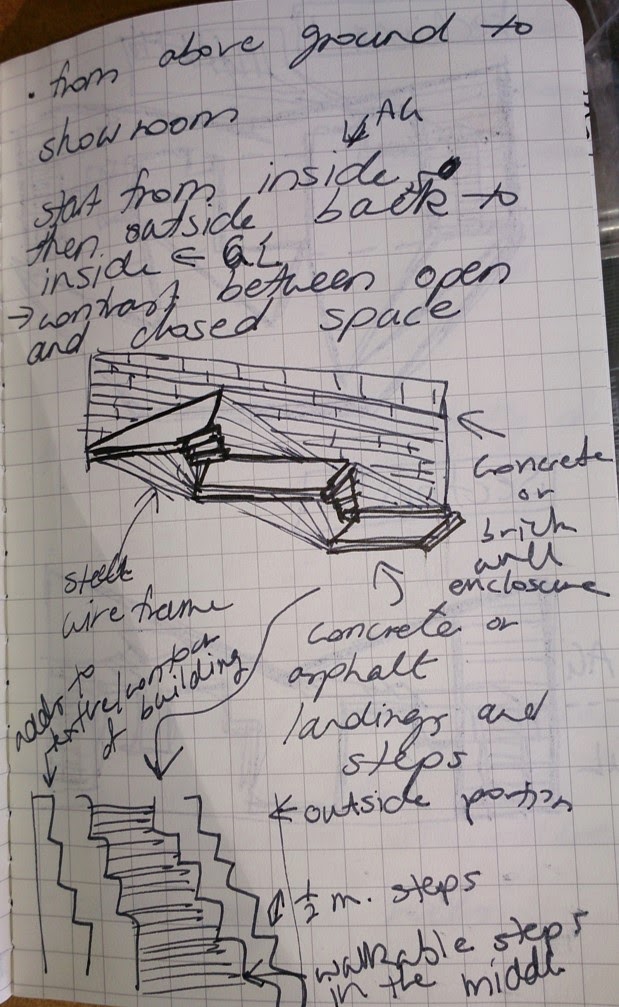 • from above ground to
showroom
AG
start from inside
then outside back to
inside ⇐ GL
→ contrast between open
and closed space
concrete
or
brick
wall
enclosure
steel
wire frame
concrete or
asphalt
landings and
steps
adds to
texture/contour
of building
← outside portion
1/2 m. steps
walkable steps
in the middle